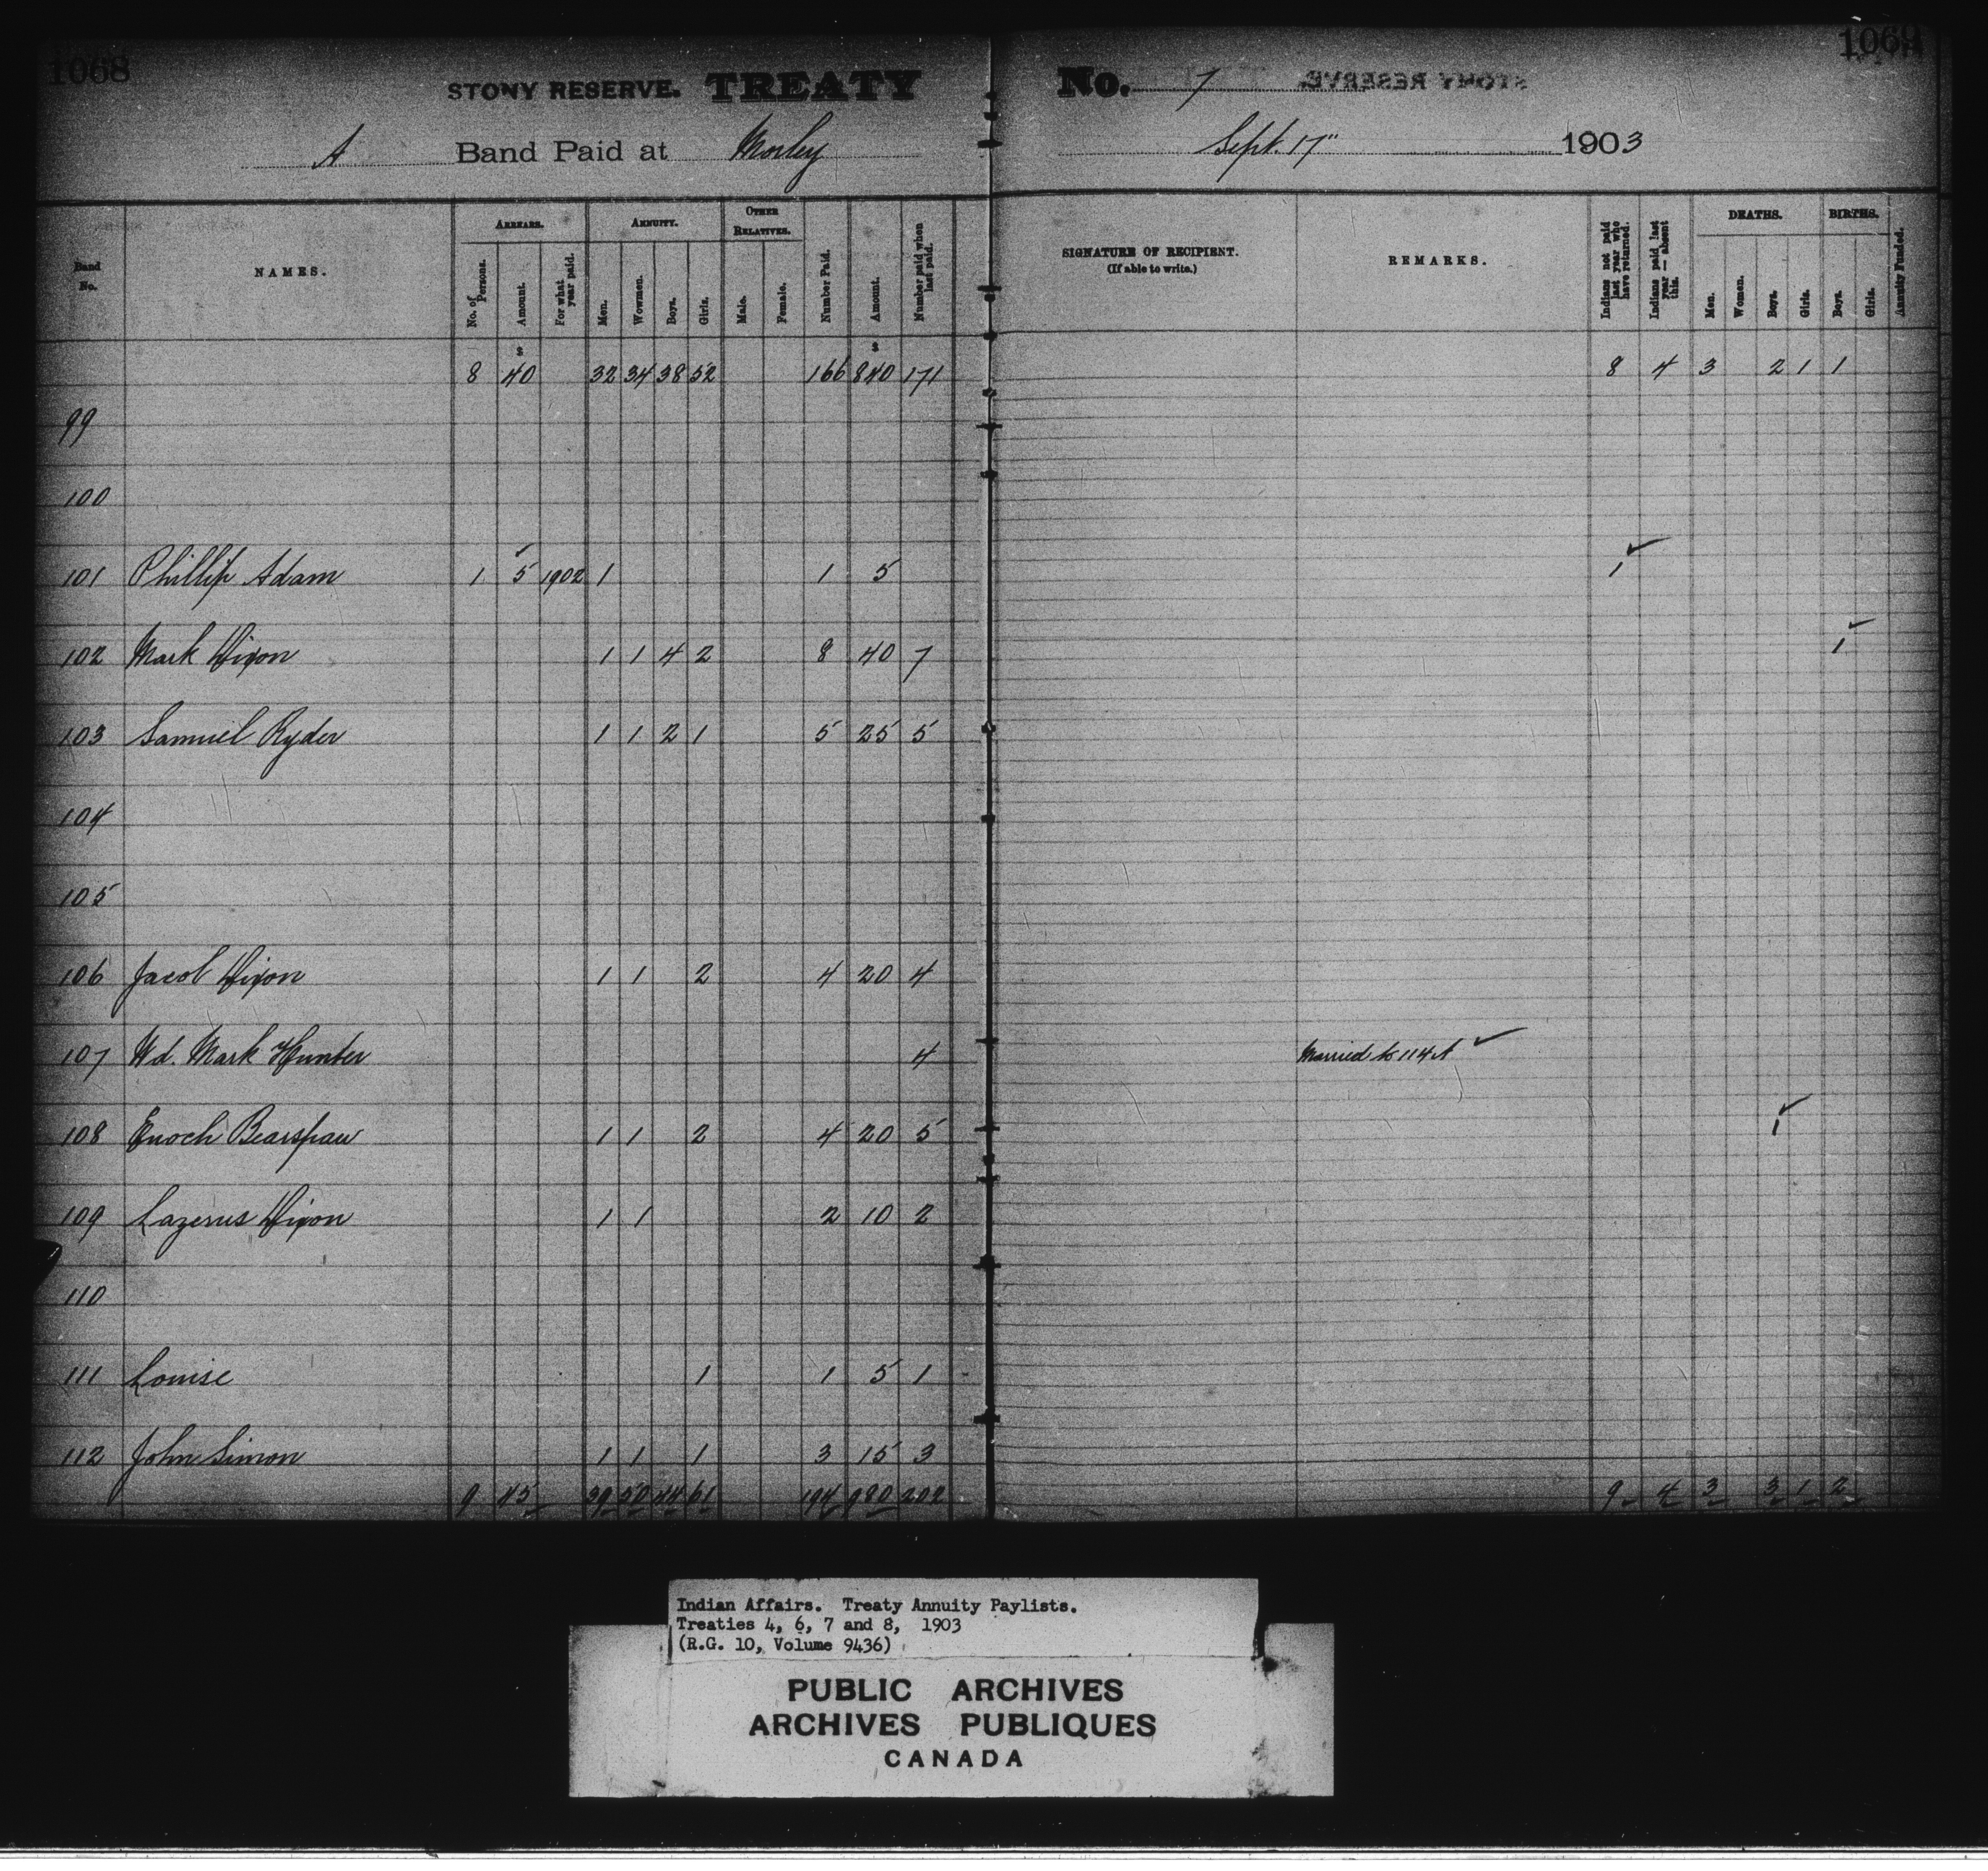 1068
STONY RESERVE. TREATY No. 7
1069
A Band Paid at Morley Sept. 17" 1903
Band No.
NAMES.
ARREARS.
No. of Persons.
Amount.
For what year paid.
ANNUITY.
Men.
Wowmen.
Boys.
Girls.
OTHER RELATIVES.
Male.
Female.
Number Paid.
Amount.
Number paid when last paid.
SIGNATURE OF RECIPIENT.
(If able to write.)
REMARKS.
Indians not paid last year who have returned.
Indians paid last year — absent this.
DEATHS.
Men.
Women.
Boys.
Girls.
BIRTHS.
Boys.
Girls.
Annuity Funded.
$ $
8 40 32 34 38 52 166 840 171 8 4 3 2 1 1
99
100
101 Phillip Adam 1 5 1902 1 1 5 1
102 Mark Dixon 1 1 4 2 8 40 7 1
103 Samuel Ryder 1 1 2 1 5 25 5
104
105
106 Jacob Dixon 1 1 2 4 20 4
107 Wd. Mark Hunter 4 Married to 114 A
108 Enoch Bearspaw 1 1 2 4 20 5 1
109 Lazerus Dixon 1 1 2 10 2
110
111 Louise 1 1 5 1
112 John Simon 1 1 1 3 15 3
9 45 39 50 44 61 194 980 202 9 4 3 3 1 2
Indian Affairs. Treaty Annuity Paylists.
Treaties 4, 6, 7 and 8, 1903
(R.G. 10, Volume 9436)
PUBLIC ARCHIVES
ARCHIVES PUBLIQUES
CANADA